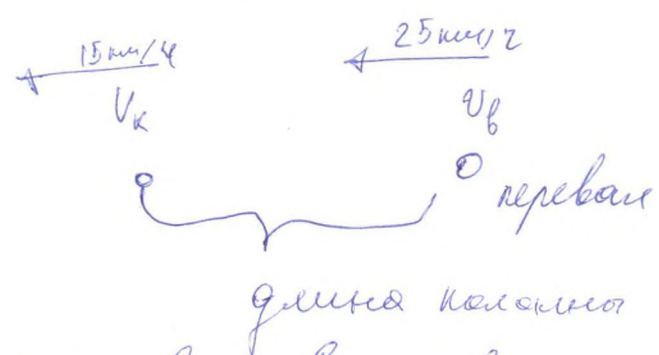 15км/ч 25км/ч
Vк Vв
перевал
длина колонны